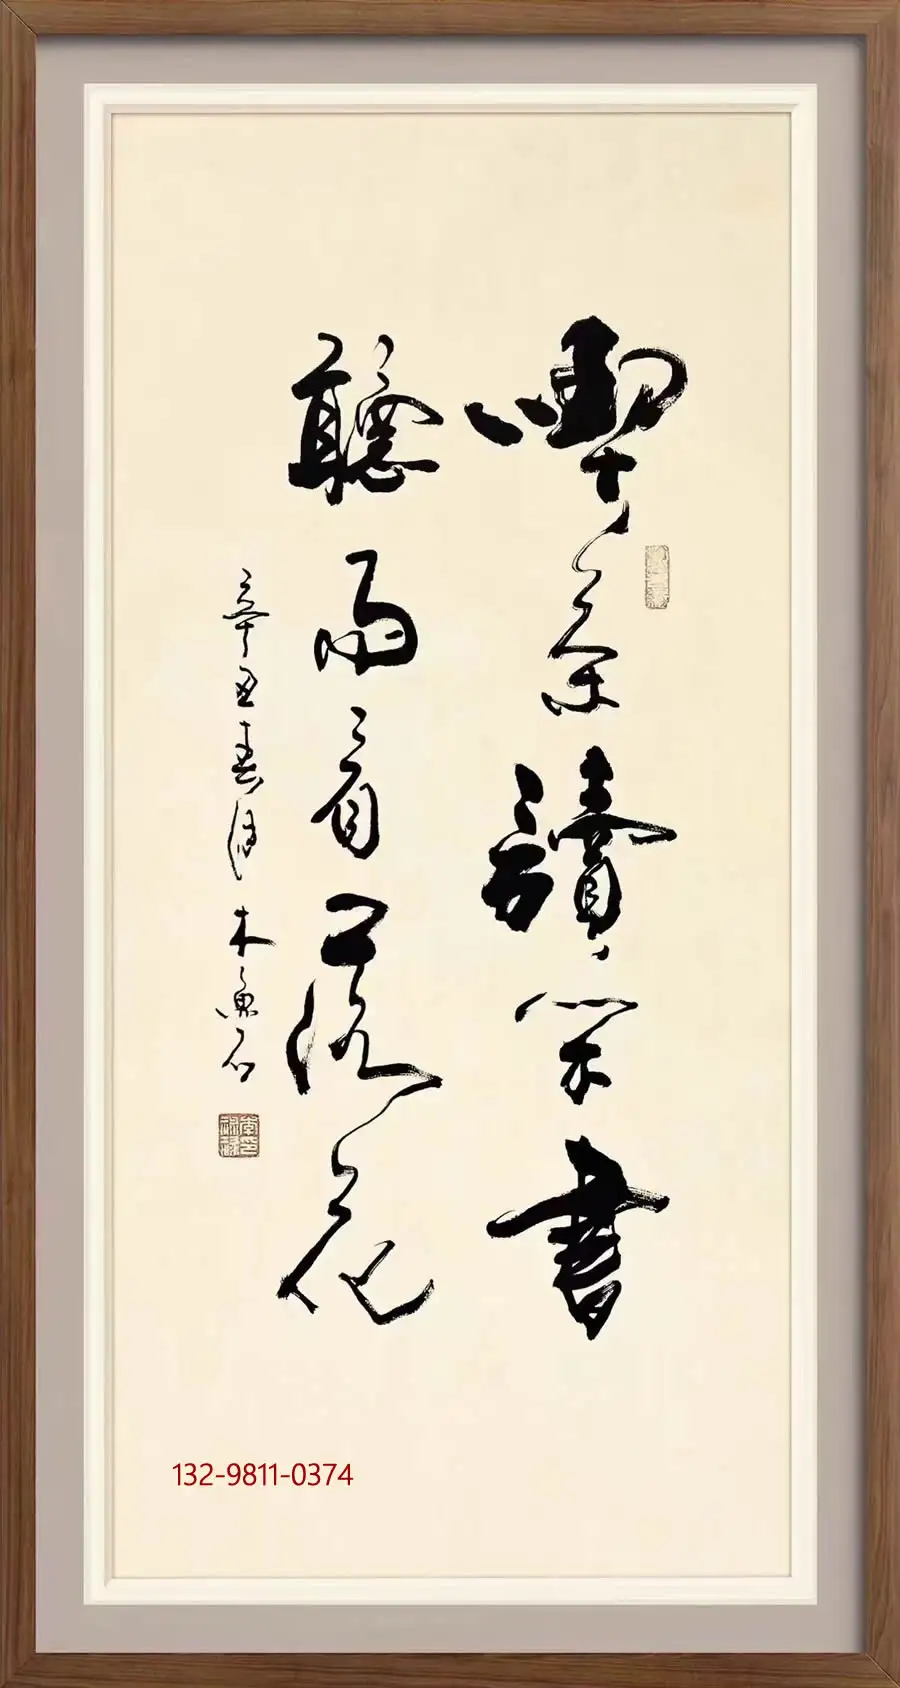 余讀閑書
聽雨看落花
辛丑春 木魚石
132-9811-0374